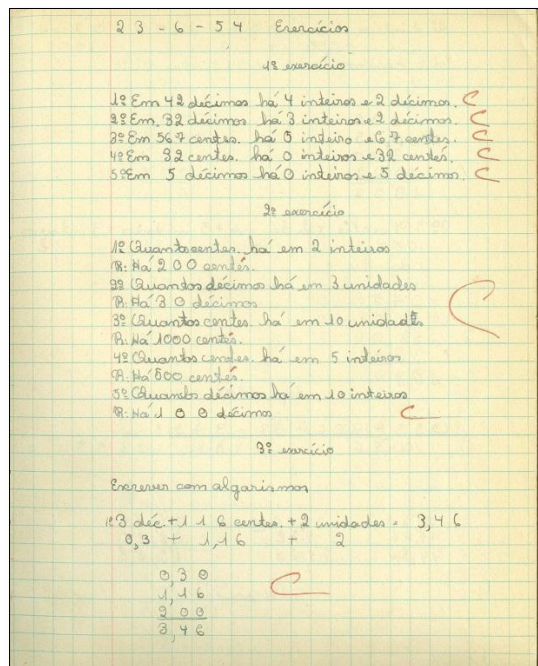 23-6-54 Exercícios
1º exercício
1º Em 42 décimos há 4 inteiros e 2 décimos. C
2º Em 32 décimos há 3 inteiros e 2 décimos. C
3º Em 567 centes. há 5 inteiro e 67 centes. C
4º Em 32 centes. há 0 inteiros e 32 centés. C
5º Em 5 décimos há 0 inteiros e 5 décimos. C
2º exercício
1º Quantos centes. há em 2 inteiros
R: Há 200 centés.
2º Quantos décimos há em 3 unidades
R: Há 30 décimos
3º Quantos centes. há em 10 unidades
R: Há 1000 centés.
4º Quantos centes. há em 5 inteiros
R: Há 500 centés.
5º Quantos décimos há em 10 inteiros
R: Há 100 décimos C
3º exercício
Escrever com algarismos
1º 3 déc. + 116 centes. + 2 unidades = 3,46
0,3 + 1,16 + 2
0,30
1,16
200
3,46 C